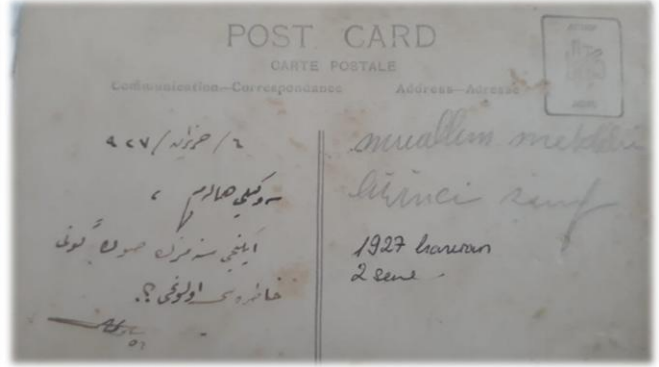 POST CARD
CARTE POSTALE
Communication—Correspondance
Address—Adresse
٦/حزيران/٩٢٧
سوكيلى همادرم ،
ايكنجى سنه مزك صوك گونى
خاطره سى اولوغى؟.
muallim mektebi
birinci sınıf
1927 haziran
2 sene